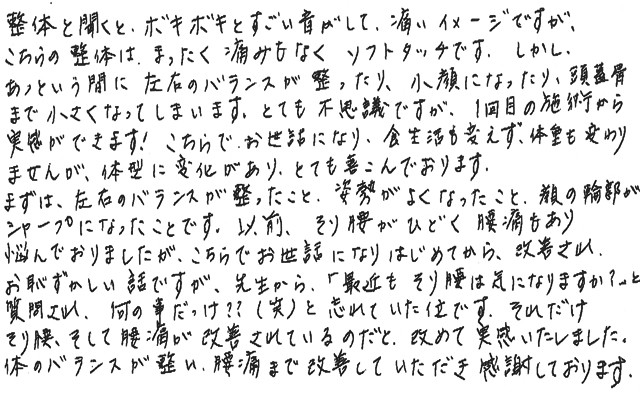 整体と聞くと、ボキボキとすごい音がして、痛いイメージですが、
こちらの整体は、まったく痛みもなく ソフトタッチです。しかし、
あっという間に 左右のバランスが 整ったり、小顔になったり、頭蓋骨
まで小さくなってしまいます。とても不思議ですが、1回目の施術から
実感ができます! こちらで、お世話になり、食生活も変えず、体重も変わり
ませんが、体型に変化があり、とても喜こんでおります。
まずは、左右のバランスが整ったこと、姿勢がよくなったこと、顔の輪郭が
シャープになったことです。以前、そり腰がひどく腰痛もあり
悩んでおりましたが、こちらでお世話になりはじめてから、改善され、
お恥ずかしい話ですが、先生から、「最近も そり腰は気になりますか?」と
質問され、何の事だっけ??(笑)と忘れていた位です。それだけ
そり腰、そして腰痛が改善されているのだと、改めて実感いたしました。
体のバランスが整い、腰痛まで改善していただき感謝しております。